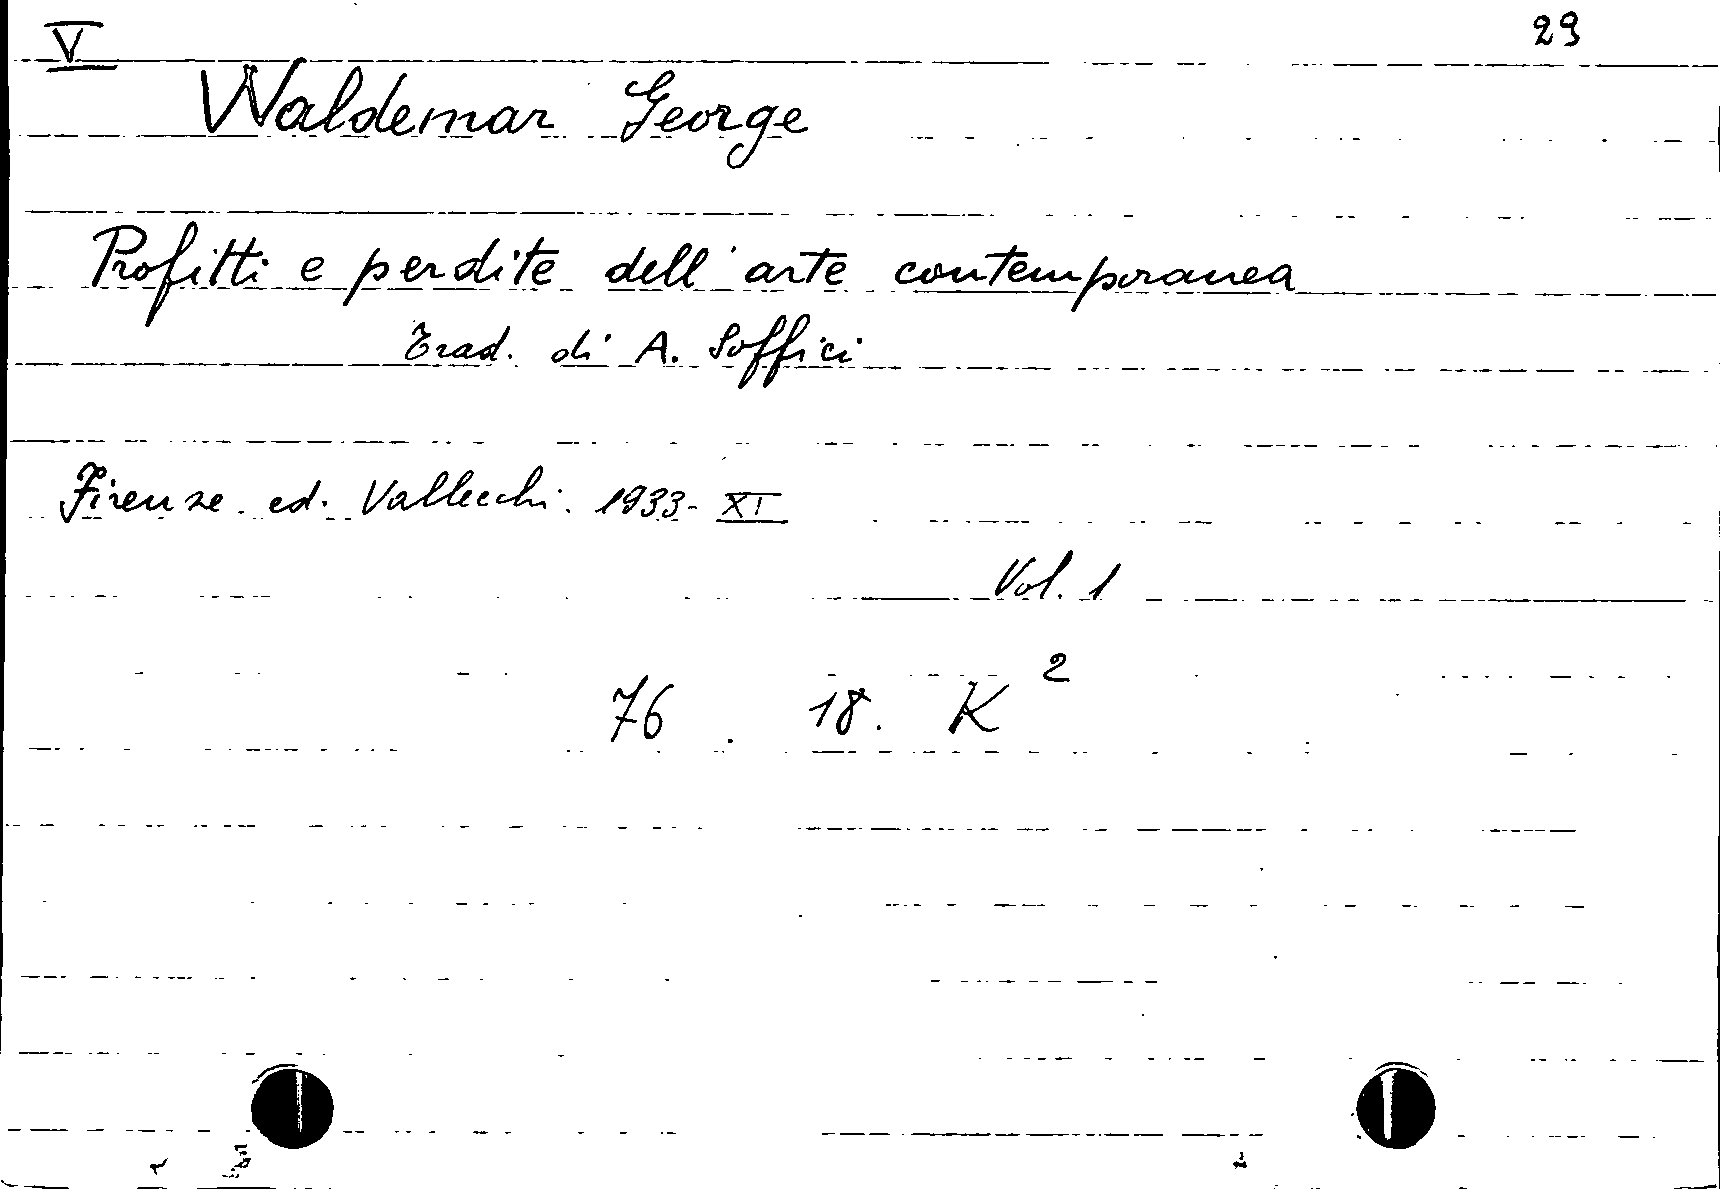 V 29
Waldemar George
Profitti e perdite dell'arte contemporanea
Trad. di A. Soffici
Firenze. ed. Vallecchi. 1933-XI
Vol. 1
76. 18. K²